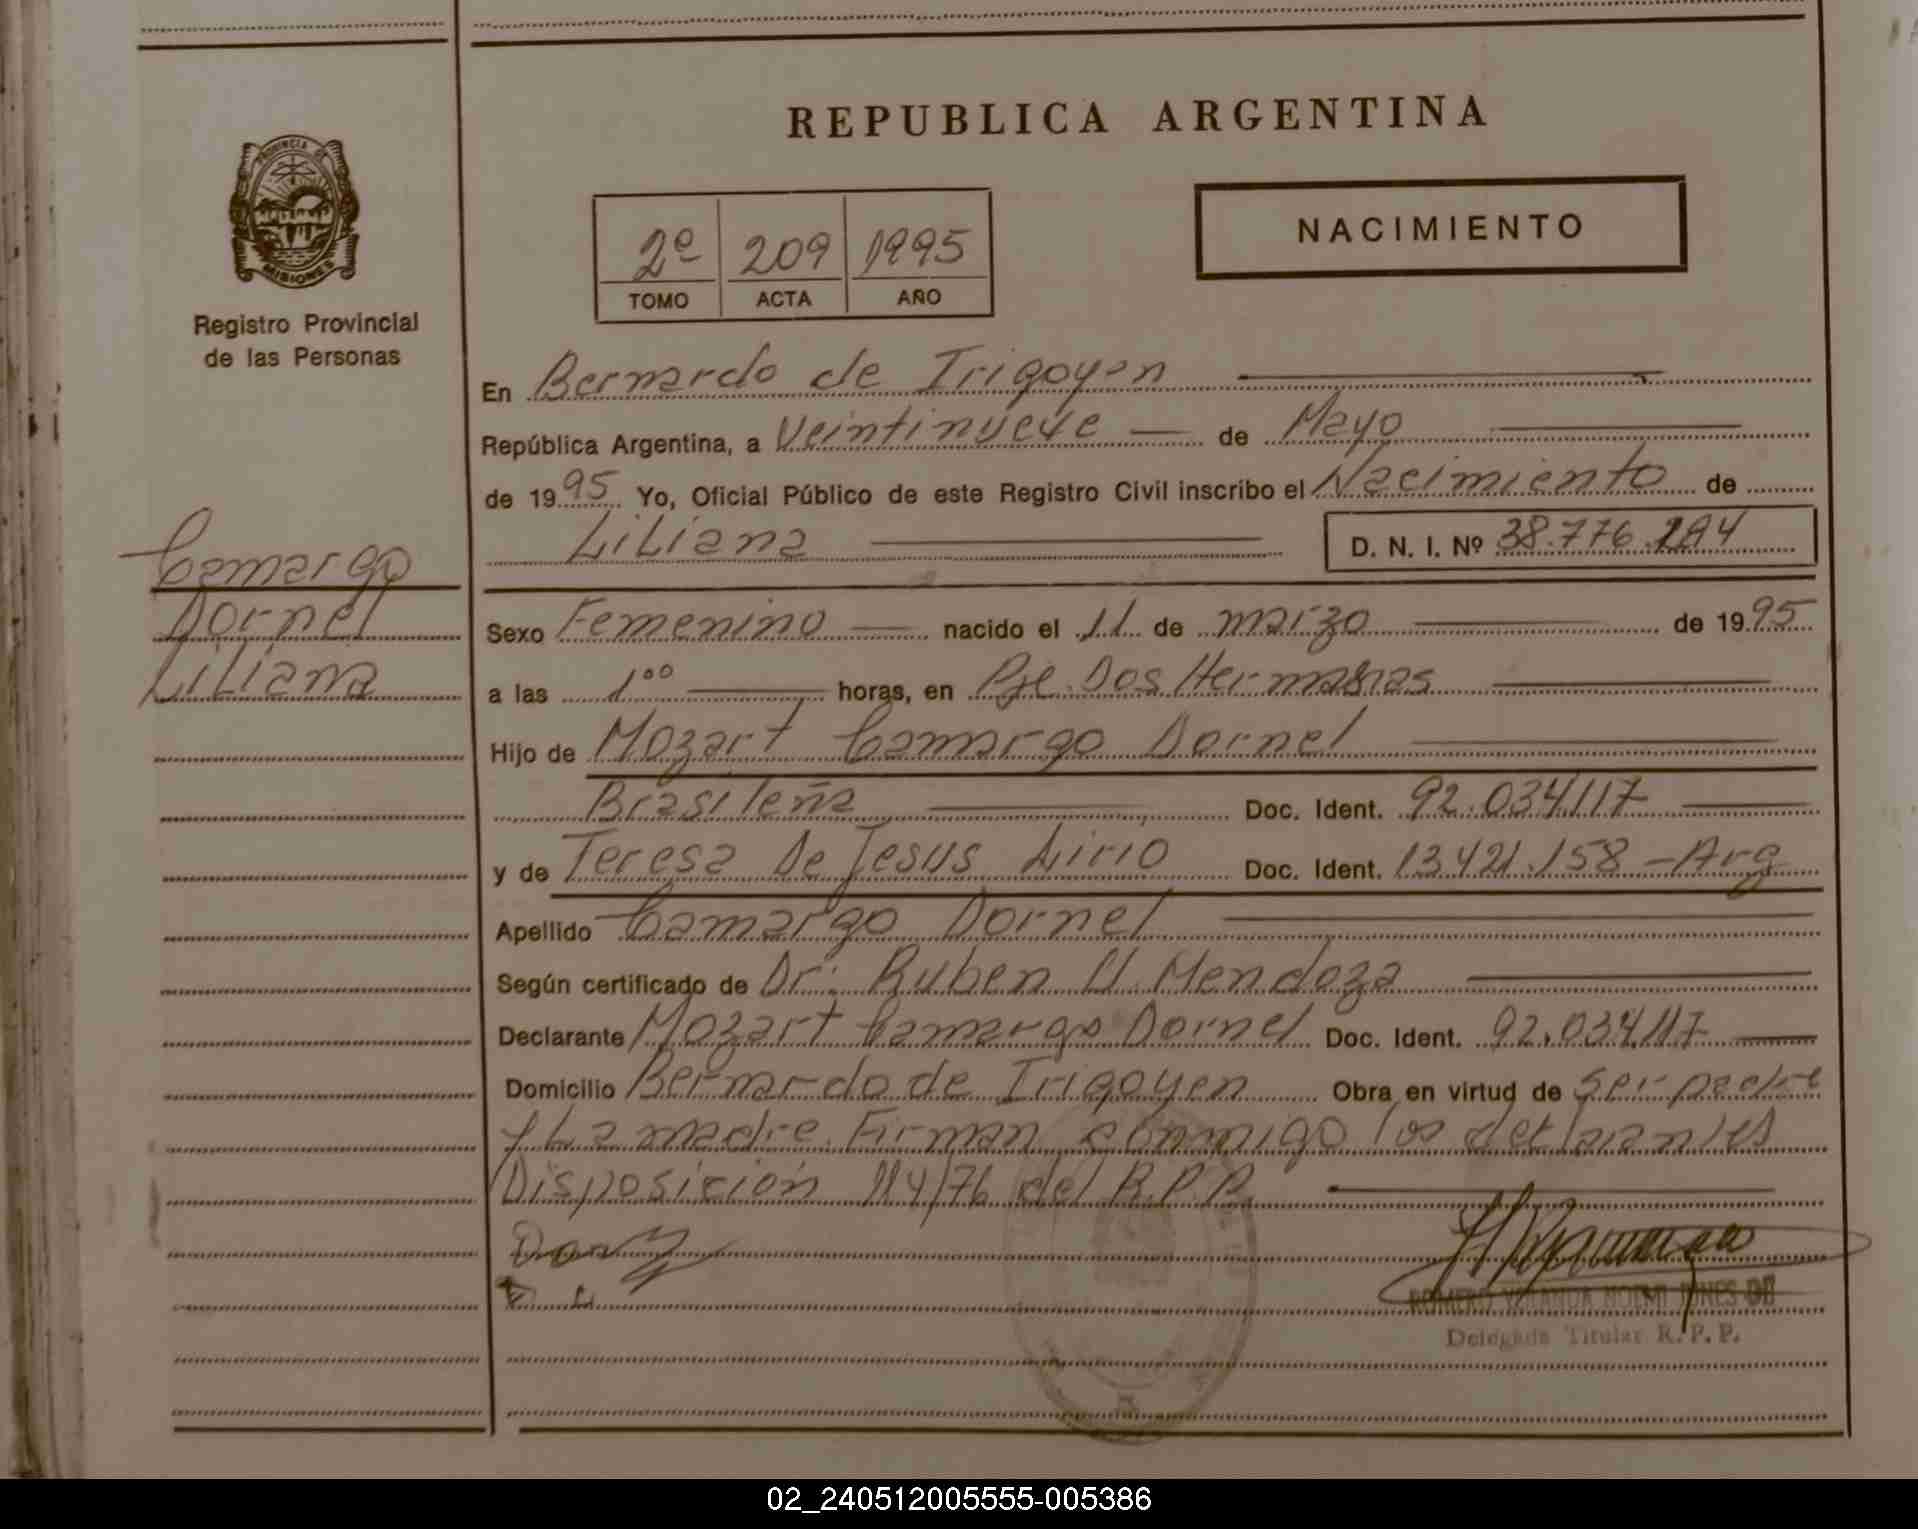 REPUBLICA ARGENTINA
PROVINCIA DE
MISIONES
Registro Provincial
de las Personas
2º 209 1995
TOMO ACTA AÑO
NACIMIENTO
En Bernardo de Irigoyen
República Argentina, a Veintinueve de Mayo
de 1995 Yo, Oficial Público de este Registro Civil inscribo el Nacimiento de
Liliana D. N. I. Nº 38.776.194
Camargo
Dornel
Liliana
Sexo Femenino nacido el 11 de marzo de 1995
a las 1°° horas, en Pje. Dos Hermanas
Hijo de Mozart Camargo Dornel
Brasileña Doc. Ident. 92.034.117
y de Teresa De Jesus Lirio Doc. Ident. 13.421.158 - Arg
Apellido Camargo Dornel
Según certificado de Dr. Ruben U. Mendoza
Declarante Mozart Camargo Dornel Doc. Ident. 92.034.117
Domicilio Bernardo de Irigoyen Obra en virtud de ser padre
y La madre. Firman conmigo los declarantes
Disposición 114/76 del R.P.P.
ROMERO YOLANDA NOEMI JONES DE
Delegada Titular R. P. P.
02_240512005555-005386